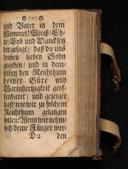 und Vater in dem
Himmel / Preiß / Eh-
re / Lob und Danck sey
dir gesagt / daß du uns
deinen lieben Sohn
gegeben / und in dem-
selben den Reichthum
deiner Güte und
Barmhertzigkeit geof-
fenbaret / und gezeiget
hast / wie wir zu solchem
Reichthum gelangen
sollen: Wenn wir nehm-
lich deine Jünger wer-
D 2 den